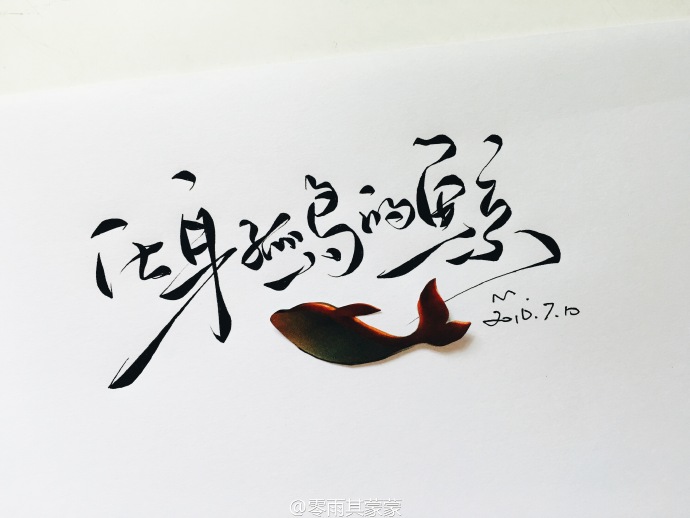 化身孤岛的鲸
M.
2016.7.10
@零雨其蒙蒙